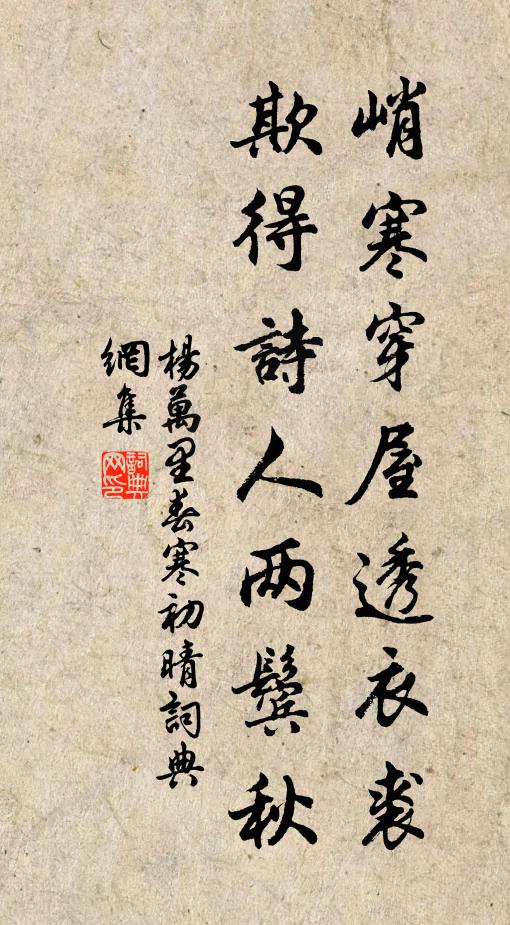 峭寒穿屋透衣裘
欺得詩人两鬓秋
楊萬里春寒初晴詞典
網集
詞典
网印